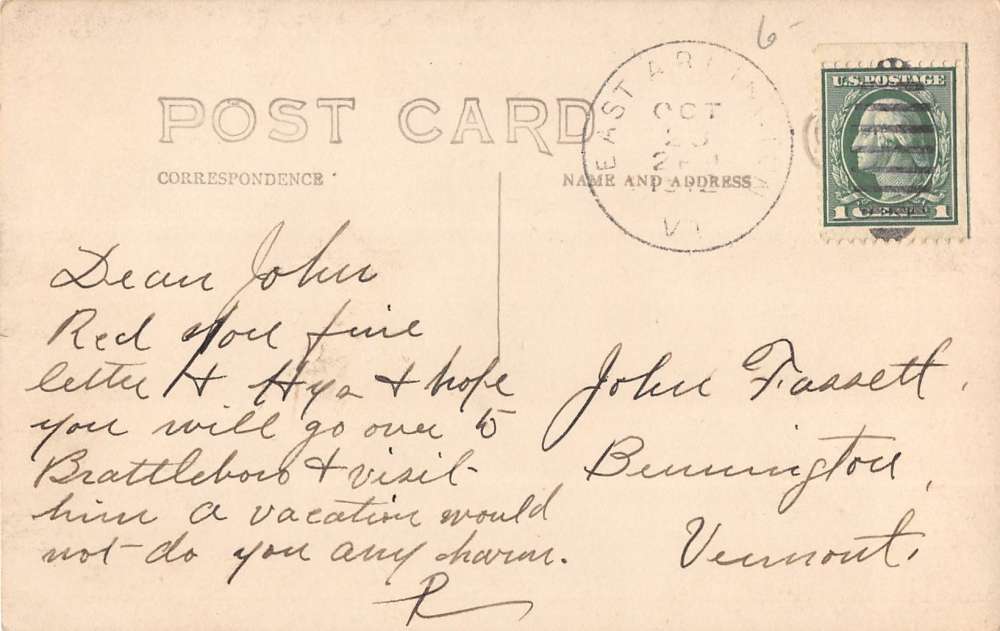 6
POST CARD
CORRESPONDENCE
NAME AND ADDRESS
EAST ARLINGTON
OCT
1912
VT
U.S. POSTAGE
1 CENT 1
Dear John
Red your fine
letter & & hope
you will go over to
Brattleboro & visit
him a vacation would
not do you any harm.
R
John Fassett,
Bennington,
Vermont.